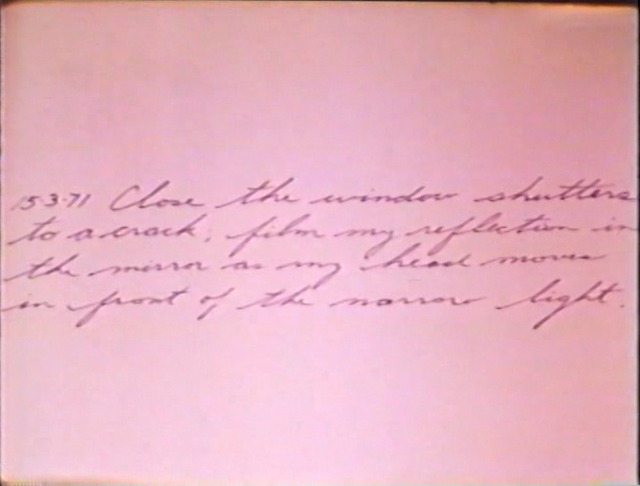 15·3·71 Close the window shutters
to a crack, film my reflection in
the mirror as my head moves
in front of the narrow light.